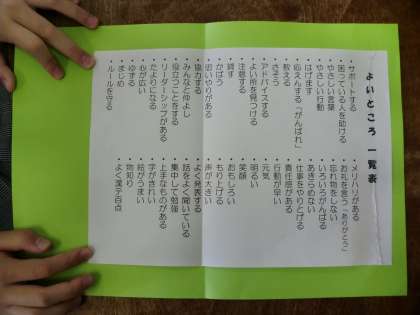 よいところ 一覧表
・サポートする
・困っている人を助ける
・やさしい言葉
・やさしい行動
・はげます
・応えんする「がんばれ」
・教える
・さそう
・アドバイスする
・よい所を見つける
・注意する
・貸す
・かばう
・思いやりがある
・協力する
・みんなと仲よし
・役立つことをする
・リーダーシップがある
・たよりになる
・心が広い
・ゆずる
・まじめ
・ルールを守る
・メリハリがある
・お礼を言う「ありがとう」
・忘れ物をしない
・いろいろがんばる
・あきらめない
・仕事をやりとげる
・責任感がある
・行動が早い
・元気
・明るい
・笑顔
・おもしろい
・もり上げる
・声が大きい
・よく発表する
・話をよく聞いている
・集中して勉強
・上手なものがある
・字がきれい
・絵がうまい
・物知り
・よく漢テ百点